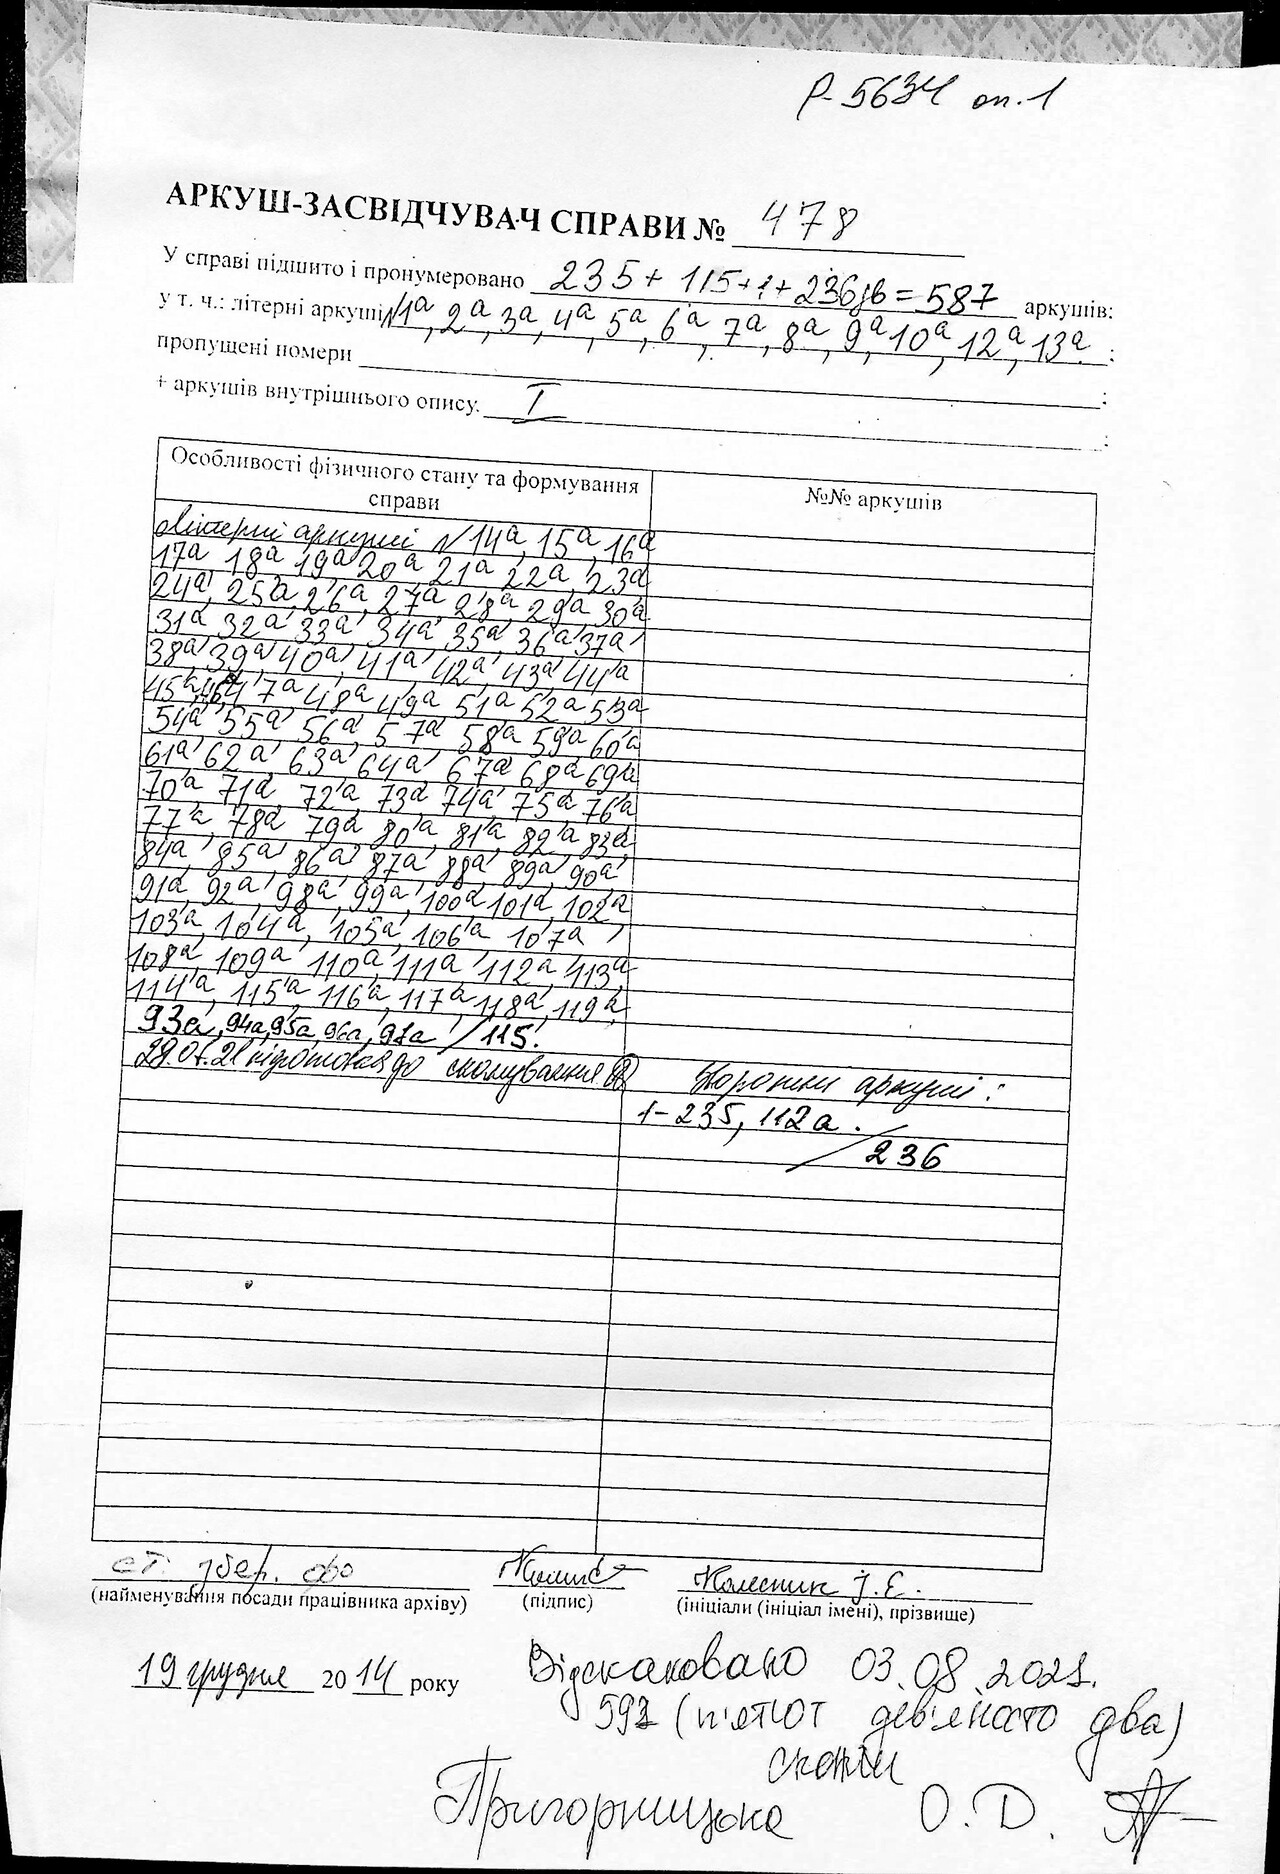 Р-5634 оп.1
АРКУШ-ЗАСВІДЧУВАЧ СПРАВИ № 478
У справі підшито і пронумеровано 235+115+1+236зв=587 аркушів:
у т. ч.: літерні аркуші №1а, 2а, 3а, 4а, 5а, 6а, 7а, 8а, 9а, 10а, 12а, 13а ;
пропущені номери ;
+ аркушів внутрішнього опису. I ;
Особливості фізичного стану та формування справи
№№ аркушів
Літерні аркуші №14а, 15а, 16а
17а, 18а, 19а, 20а, 21а, 22а, 23а
24а, 25а, 26а, 27а, 28а, 29а, 30а
31а, 32а, 33а, 34а, 35а, 36а, 37а,
38а, 39а, 40а, 41а, 42а, 43а, 44а
45а, 46а, 47а, 48а, 49а, 51а, 52а, 53а
54а, 55а, 56а, 57а, 58а, 59а, 60а
61а, 62а, 63а, 64а, 67а, 68а, 69а
70а, 71а, 72а, 73а, 74а, 75а, 76а
77а, 78а, 79а, 80а, 81а, 82а, 83а
84а, 85а, 86а, 87а, 88а, 89а, 90а,
91а, 92а, 98а, 99а, 100а, 101а, 102а
103а, 104а, 105а, 106а, 107а,
108а, 109а, 110а, 111а, 112а, 113а
114а, 115а, 116а, 117а, 118а, 119а,
93а, 94а, 95а, 96а, 97а /115.
28.07.21 підготовка до сканування
Звороти аркуші:
1-235, 112а.
/236
ст. збер. фо
Колесник І.Є.
(найменування посади працівника архіву) (підпис) (ініціали (ініціал імені), прізвище)
19 грудня 2014 року
Відскановано 03.08.2021.
592 (п'ятсот дев'яносто два)
скани
Пригорницька О.Д.